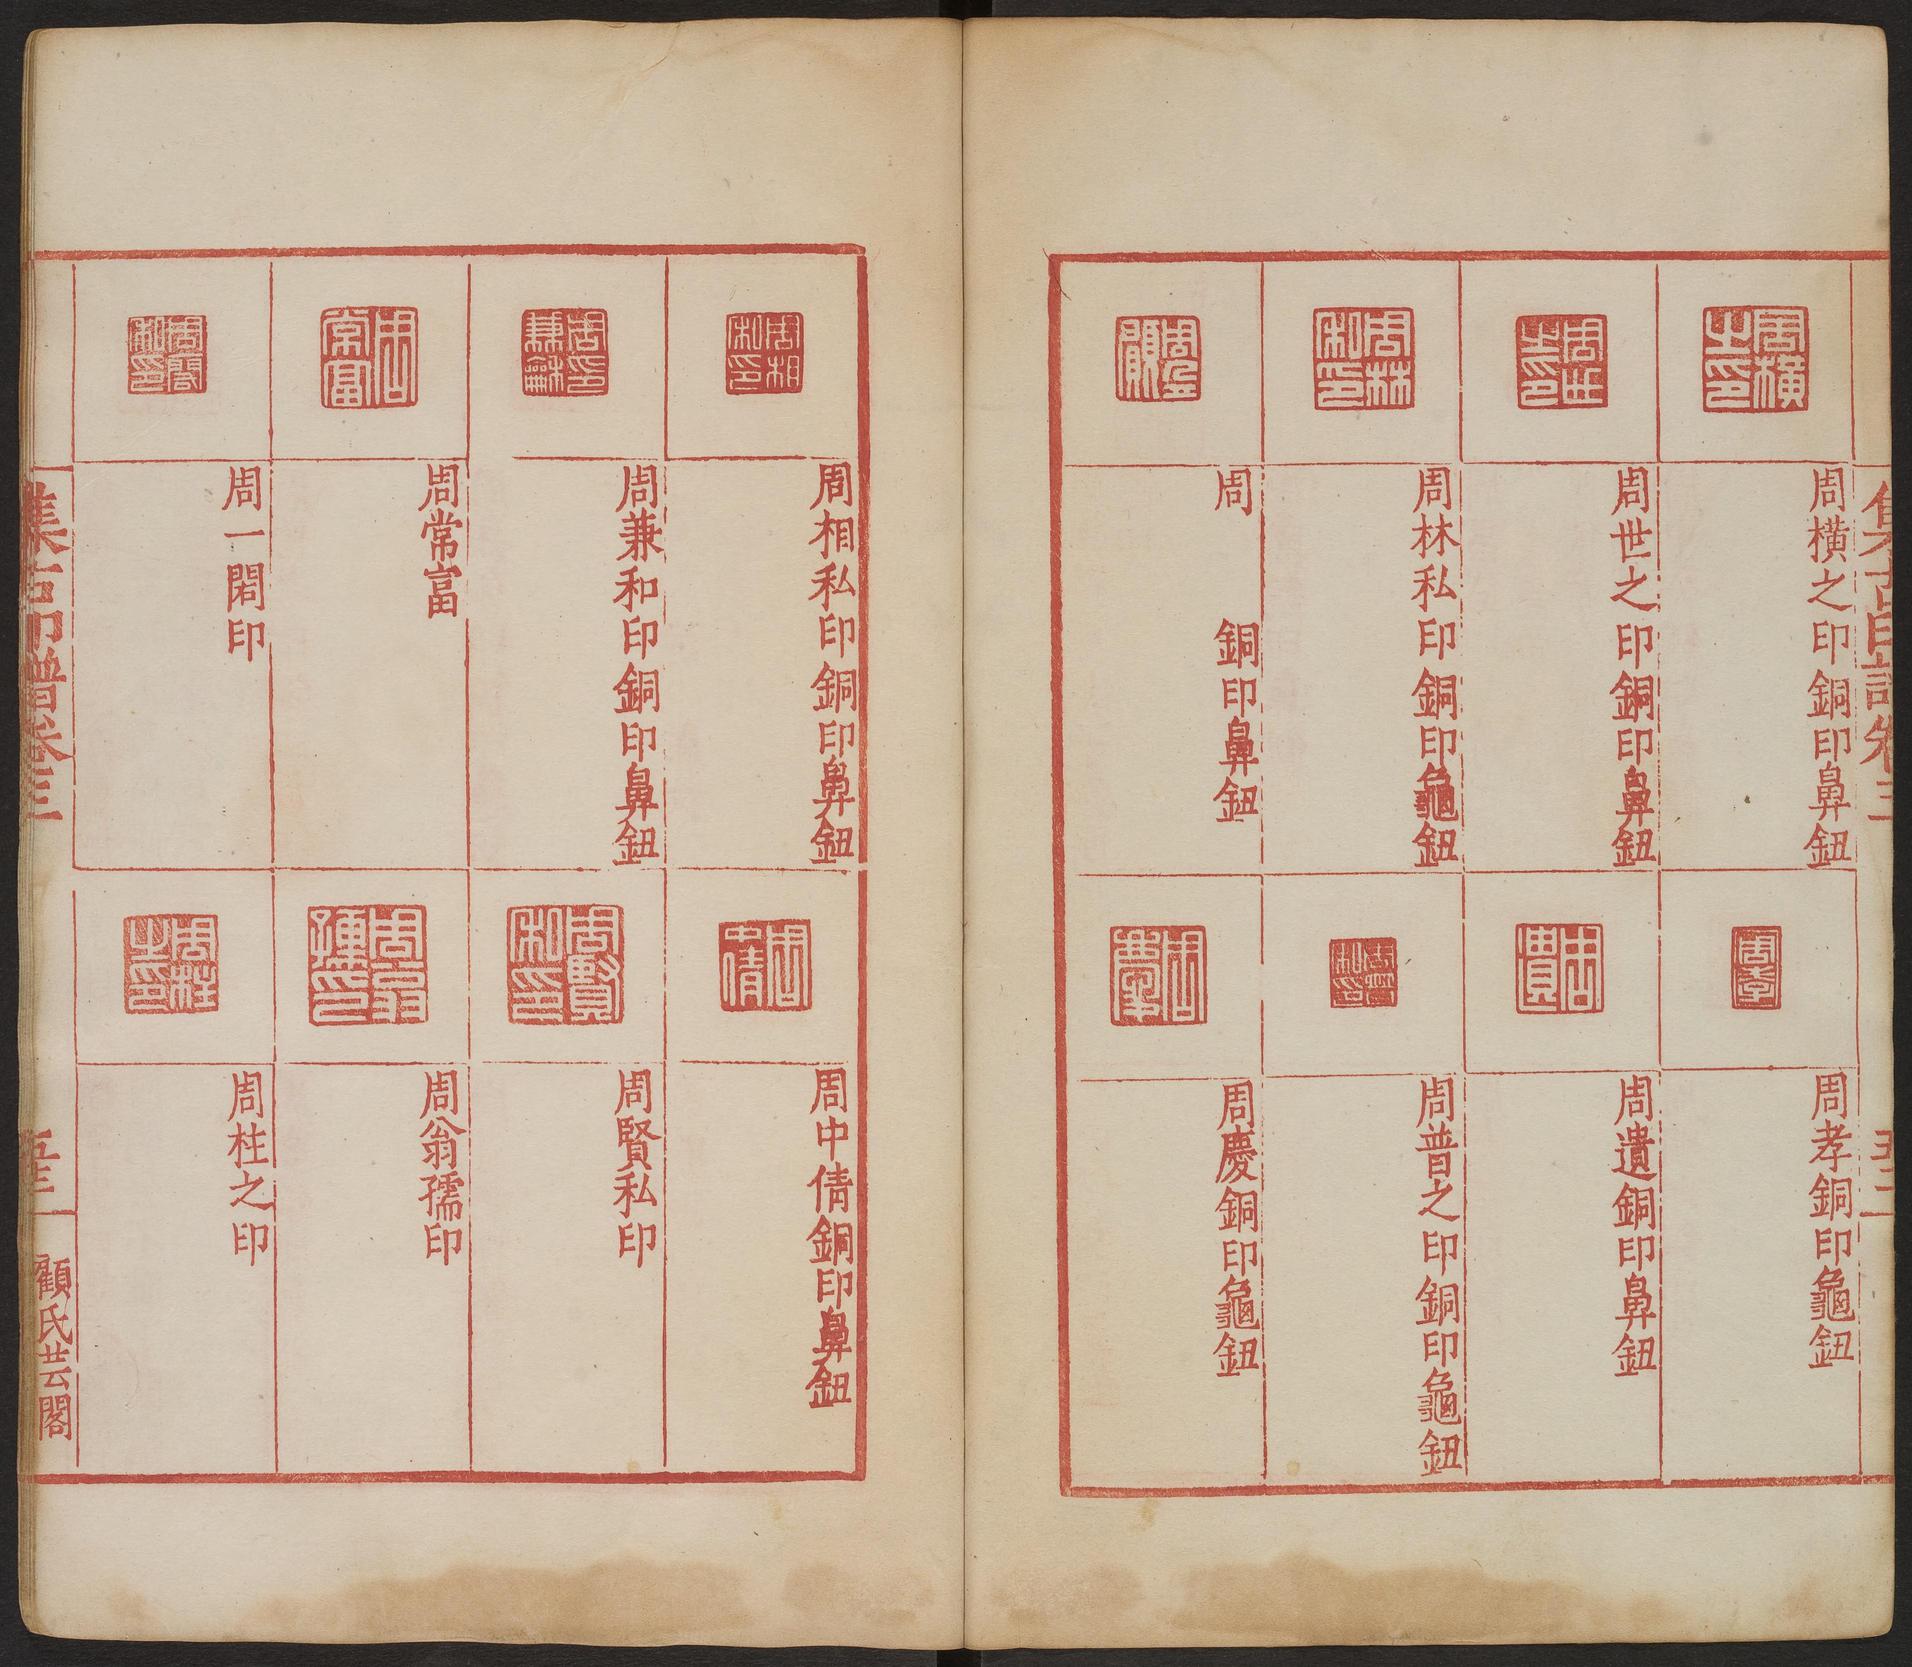 集古印譜卷三
周橫之印銅印鼻鈕
周世之印銅印鼻鈕
周林私印銅印龜鈕
周　　銅印鼻鈕
周孝銅印龜鈕
周遺銅印鼻鈕
周普之印銅印龜鈕
周慶銅印龜鈕
周相私印銅印鼻鈕
周兼和印銅印鼻鈕
周常富
周一閎印
周中倩銅印鼻鈕
周賢私印
周翁孺印
周柱之印
集古印譜卷三
顧氏芸閣